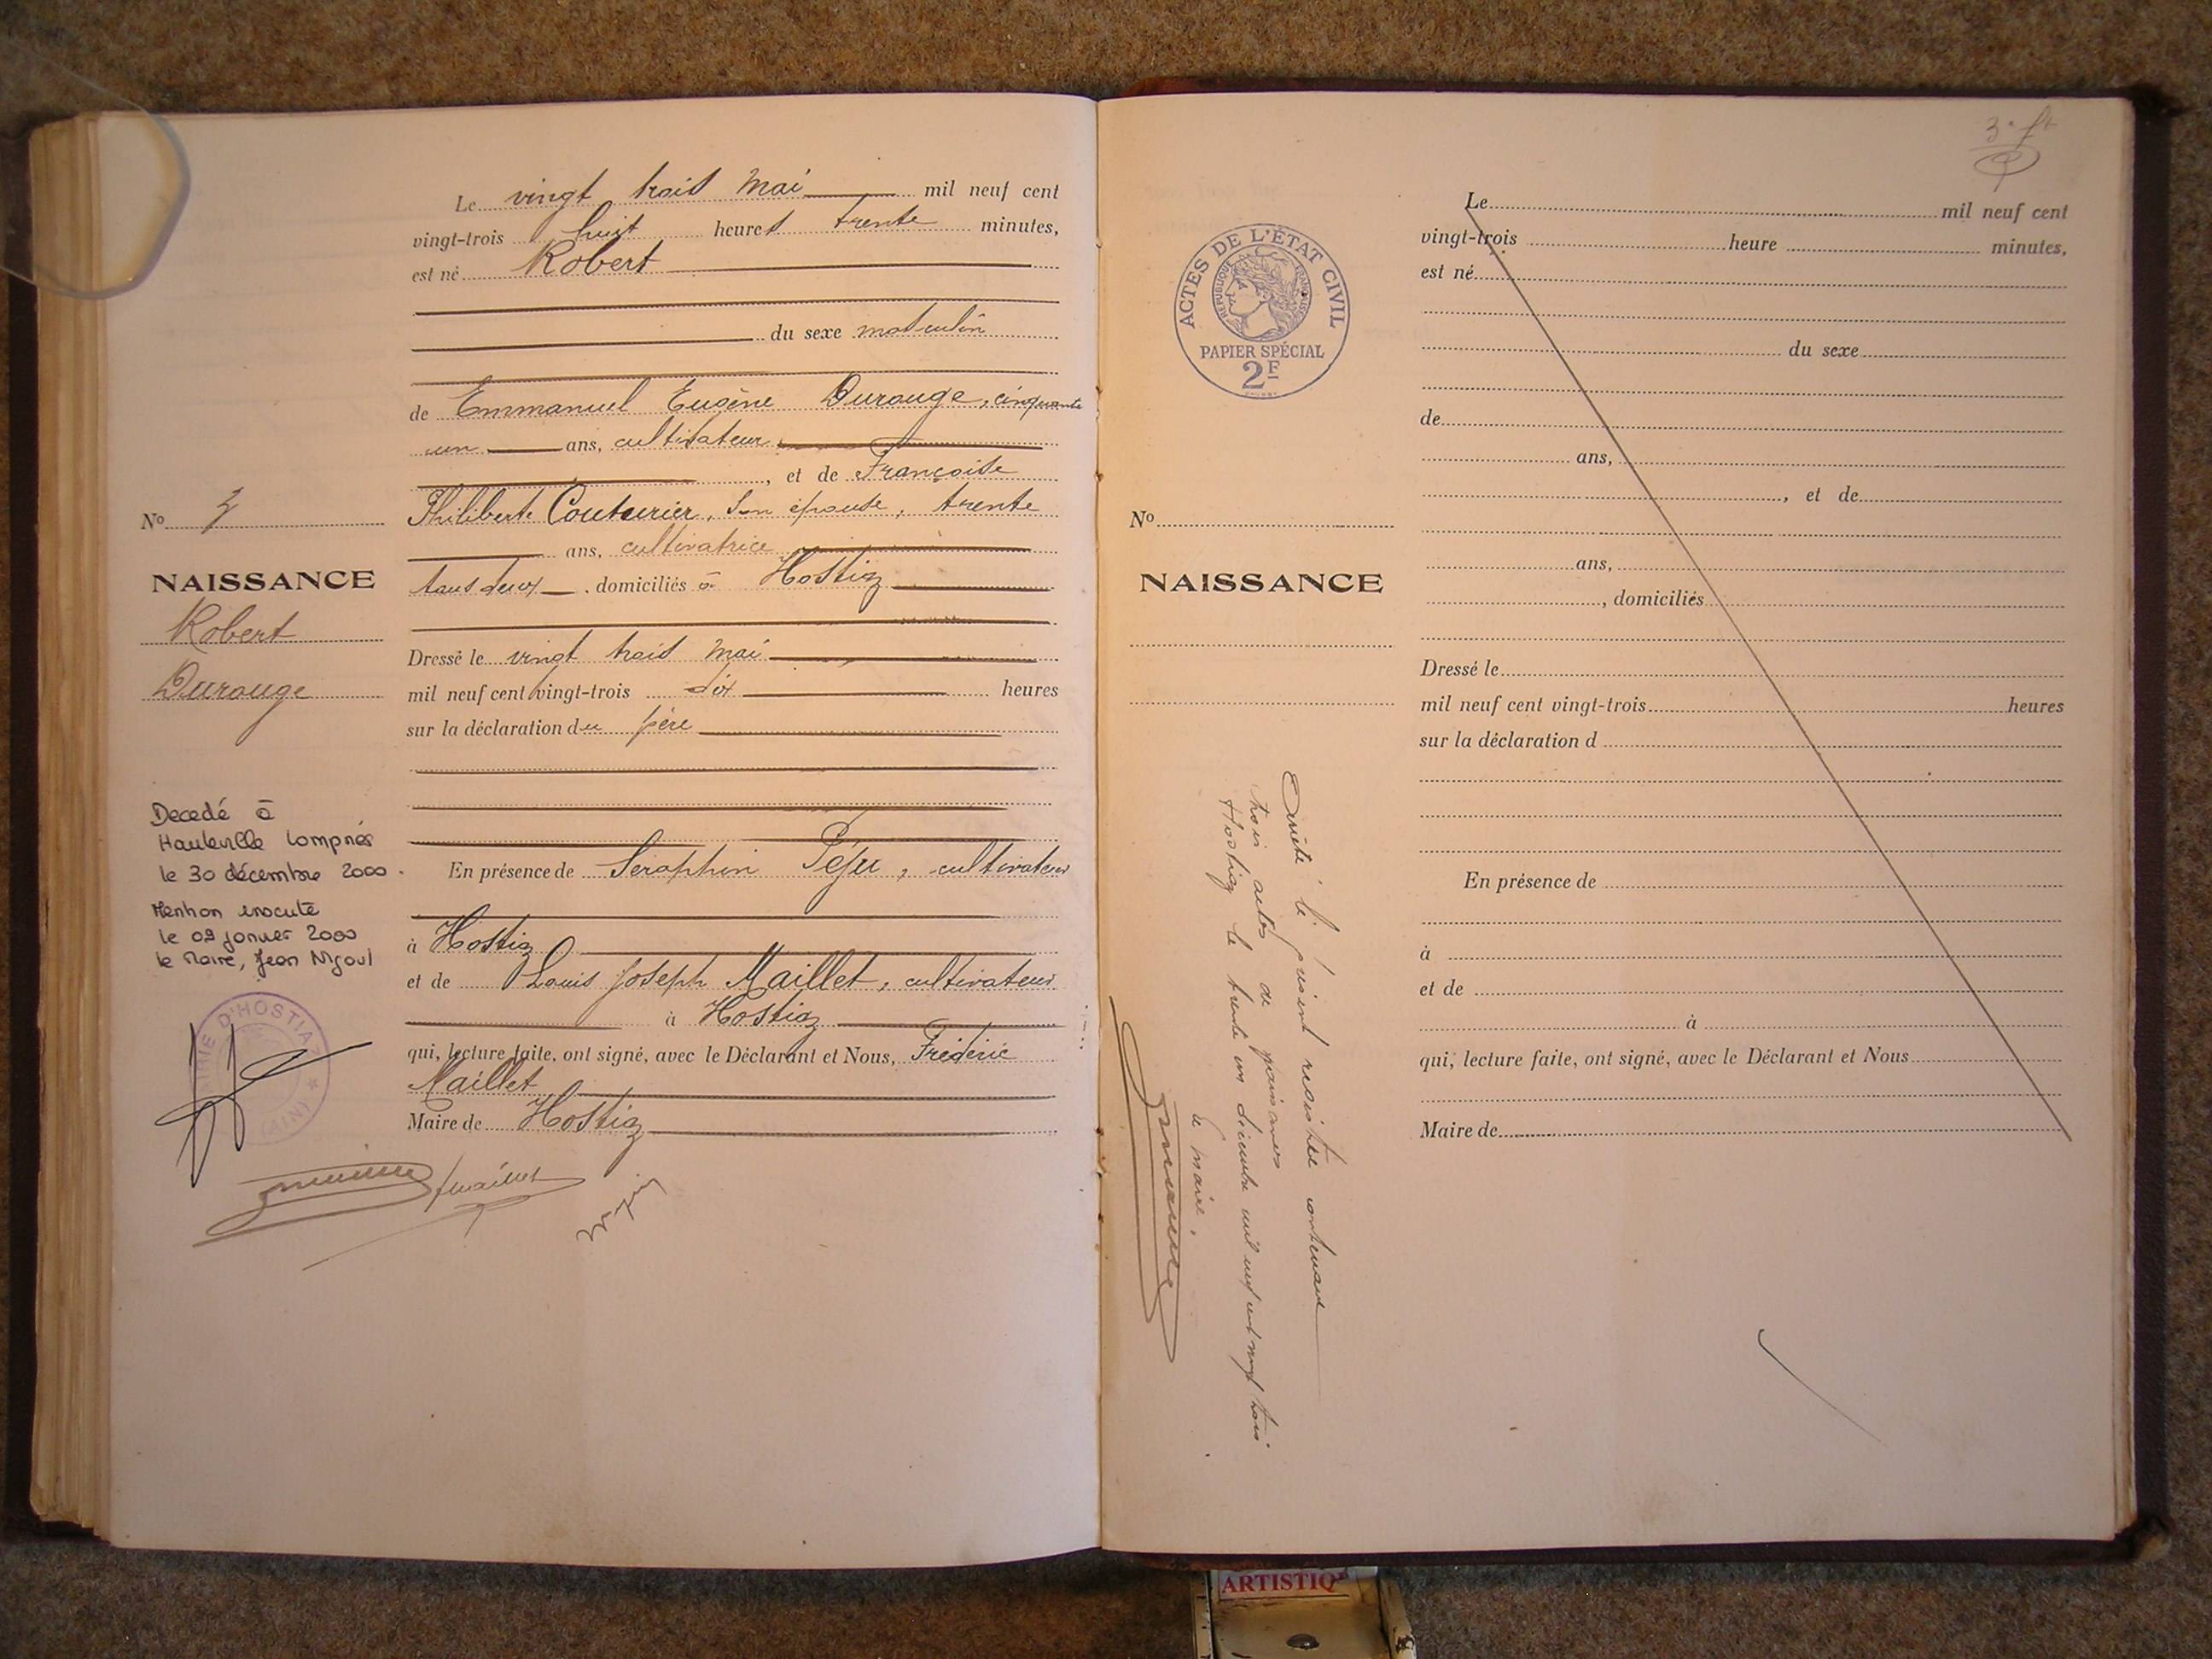 Le vingt trois Mai mil neuf cent
vingt-trois huit heures trente minutes,
est né Robert
du sexe masculin
de Emmanuel Eugène Durouge, cinquante
un ans, cultivateur
, et de Françoise
Philiberte Couturier, son épouse, trente
ans, cultivatrice
tous deux, domiciliés à Hostiaz
Dressé le vingt trois Mai
mil neuf cent vingt-trois dix heures
sur la déclaration du père
En présence de Séraphin Péju, cultivateur
à Hostiaz
et de Louis Joseph Maillet, cultivateur
à Hostiaz
qui, lecture faite, ont signé, avec le Déclarant et Nous, Frédéric
Maillet
Maire de Hostiaz
Maillet
No 3
NAISSANCE
Robert
Durouge
Decedé à
Hauteville Lompnes
le 30 décembre 2000.
Mention
le 02 janvier 2000
le Maire, Jean
MAIRIE D'HOSTIAZ
(AIN)
3e ft
ACTES DE L'ÉTAT CIVIL
RÉPUBLIQUE FRANÇAISE
PAPIER SPÉCIAL
2F
No
NAISSANCE
Arrêté le présent registre contenant
trois actes de naissances
Hostiaz le trente un décembre mil neuf cent vingt trois
le maire,
Le mil neuf cent
vingt-trois heure minutes,
est né
du sexe
de
ans,
, et de
ans,
, domiciliés
Dressé le
mil neuf cent vingt-trois heures
sur la déclaration d
En présence de
à
et de
à
qui, lecture faite, ont signé, avec le Déclarant et Nous
Maire de
ARTISTIQ